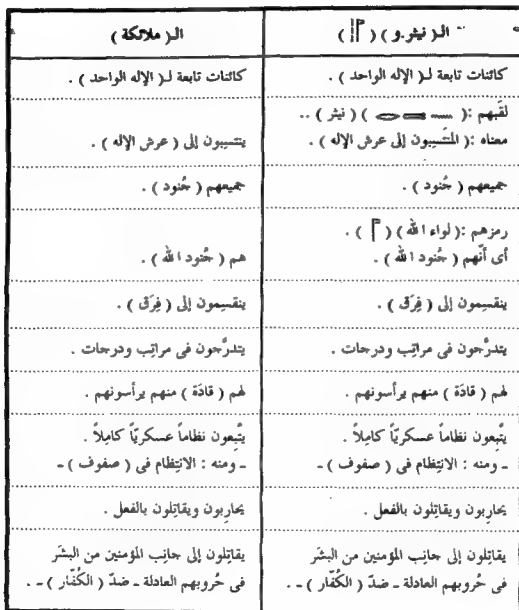 الـ( نيثر.و ) ( 𓊹 𓏪 )
الـ( ملائكة )
كائنات تابعة لـ( الإله الواحد ) .
كائنات تابعة لـ( الإله الواحد ) .
لقَبهم :( 𓈖 𓍿 𓂋 ) ( نيثر ) ..
معناه :( المنتَسِبون إلى عرش الإله ) .
ينتسِبون إلى ( عرش الإله ) .
جميعهم ( جُنود ) .
جميعهم ( جُنود ) .
رمزهم :( لواء الله ) ( 𓊹 ) .
أى أنّهم ( جُنود الله ) .
هم ( جُنود الله ) .
ينقسِمون إلى ( فِرَق ) .
ينقسِمون إلى ( فِرَق ) .
يتدرَّجون فى مراتِب ودرحات .
يتدرَّجون فى مراتِب ودرحات .
لهم ( قادَة ) منهم يرأسونهم .
لهم ( قادَة ) منهم يرأسونهم .
يتَّبِعون نظاماً عسكريّاً كامِلاً .
ـ ومنه : الانتِظام فى ( صفوف ) ـ
يتَّبِعون نظاماً عسكريّاً كامِلاً .
ـ ومنه : الانتِظام فى ( صفوف ) ـ
يحارِبون ويقاتِلون بالفعل .
يحارِبون ويقاتِلون بالفعل .
يقاتِلون إلى جانِب المؤمنين من البشَر
فى حُروبهم العادلة ـ ضدّ ( الكُفّار ) ـ .
يقاتِلون إلى جانِب المؤمنين من البشَر
فى حُروبهم العادلة ـ ضدّ ( الكُفّار ) ـ .